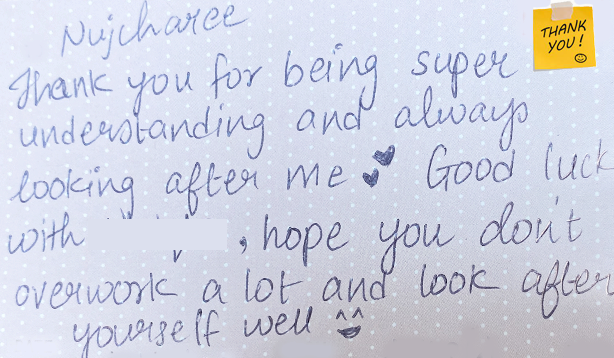 Nujcharee
THANK
YOU!
Thank you for being super
understanding and always
looking after me 💕 Good luck
with , hope you don't
overwork a lot and look after
yourself well ^^